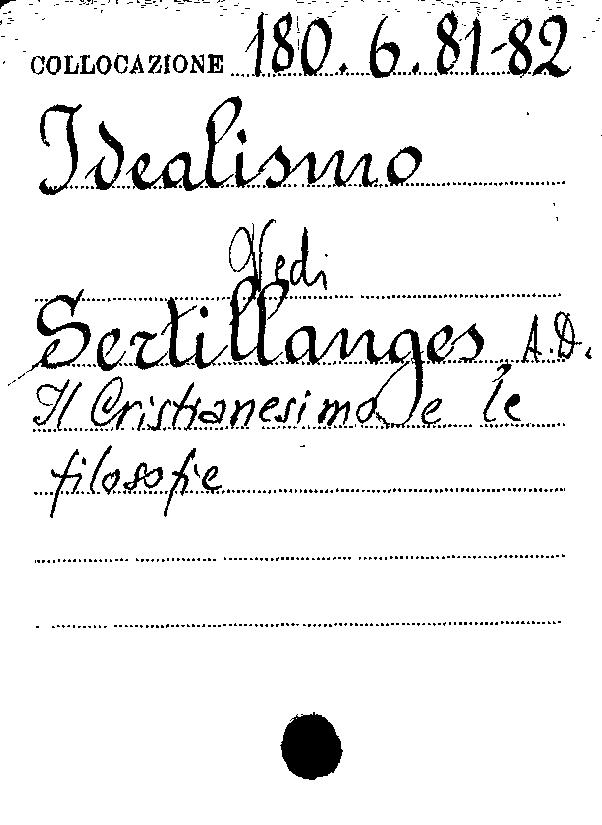 COLLOCAZIONE 180.6.81-82
Idealismo
Vedi
Sertillanges, A.D.
Il Cristianesimo e le
filosofie